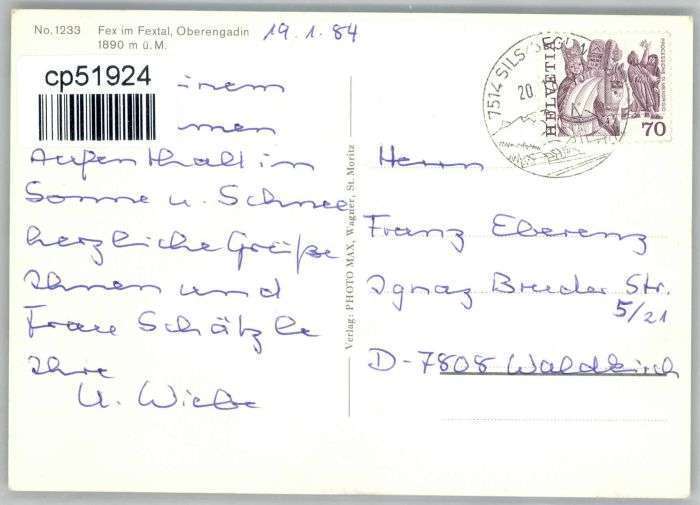 No. 1233 Fex im Fextal, Oberengadin
1890 m ü. M.
19.1.84
cp51924
inem
men
Aufenthalt in
Sonne u. Schnee
herzliche Grüße
Ihnen und
Frau Schätzle
Ihre
U. Wiebe
Verlag: PHOTO MAX, Wagner, St. Moritz
7514 SILS/SEGL
20.
HELVETIA
70
Herrn
Franz Eberenz
Ignaz Bruder Str.
5/21
D-7808 Waldkirch